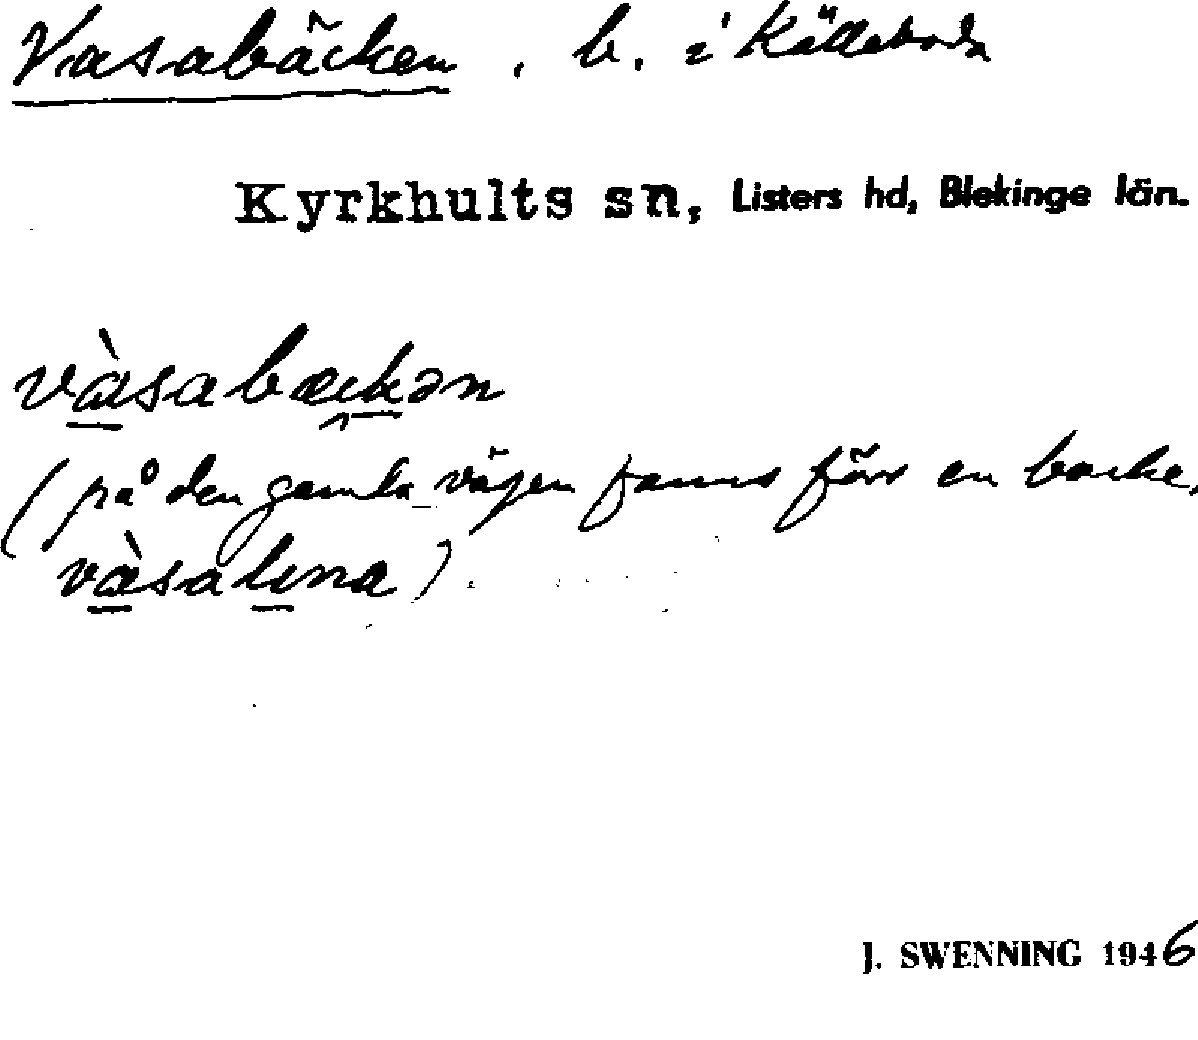 Vasabäcken, b. i Källeboda
Kyrkhults sn, Listers hd, Blekinge län.
vàsabæckən
(på den gamla vägen fanns förr en backe,
vàsalina).
J. SWENNING 1946